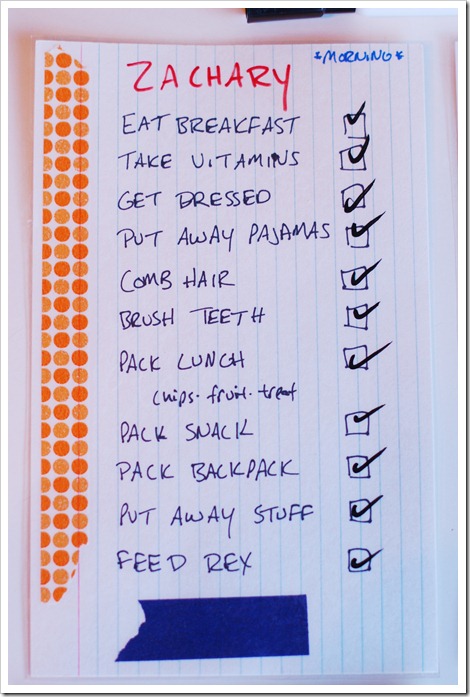 ZACHARY *MORNING*
EAT BREAKFAST
TAKE VITAMINS
GET DRESSED
PUT AWAY PAJAMAS
COMB HAIR
BRUSH TEETH
PACK LUNCH
chips. fruit. treat
PACK SNACK
PACK BACKPACK
PUT AWAY STUFF
FEED REX